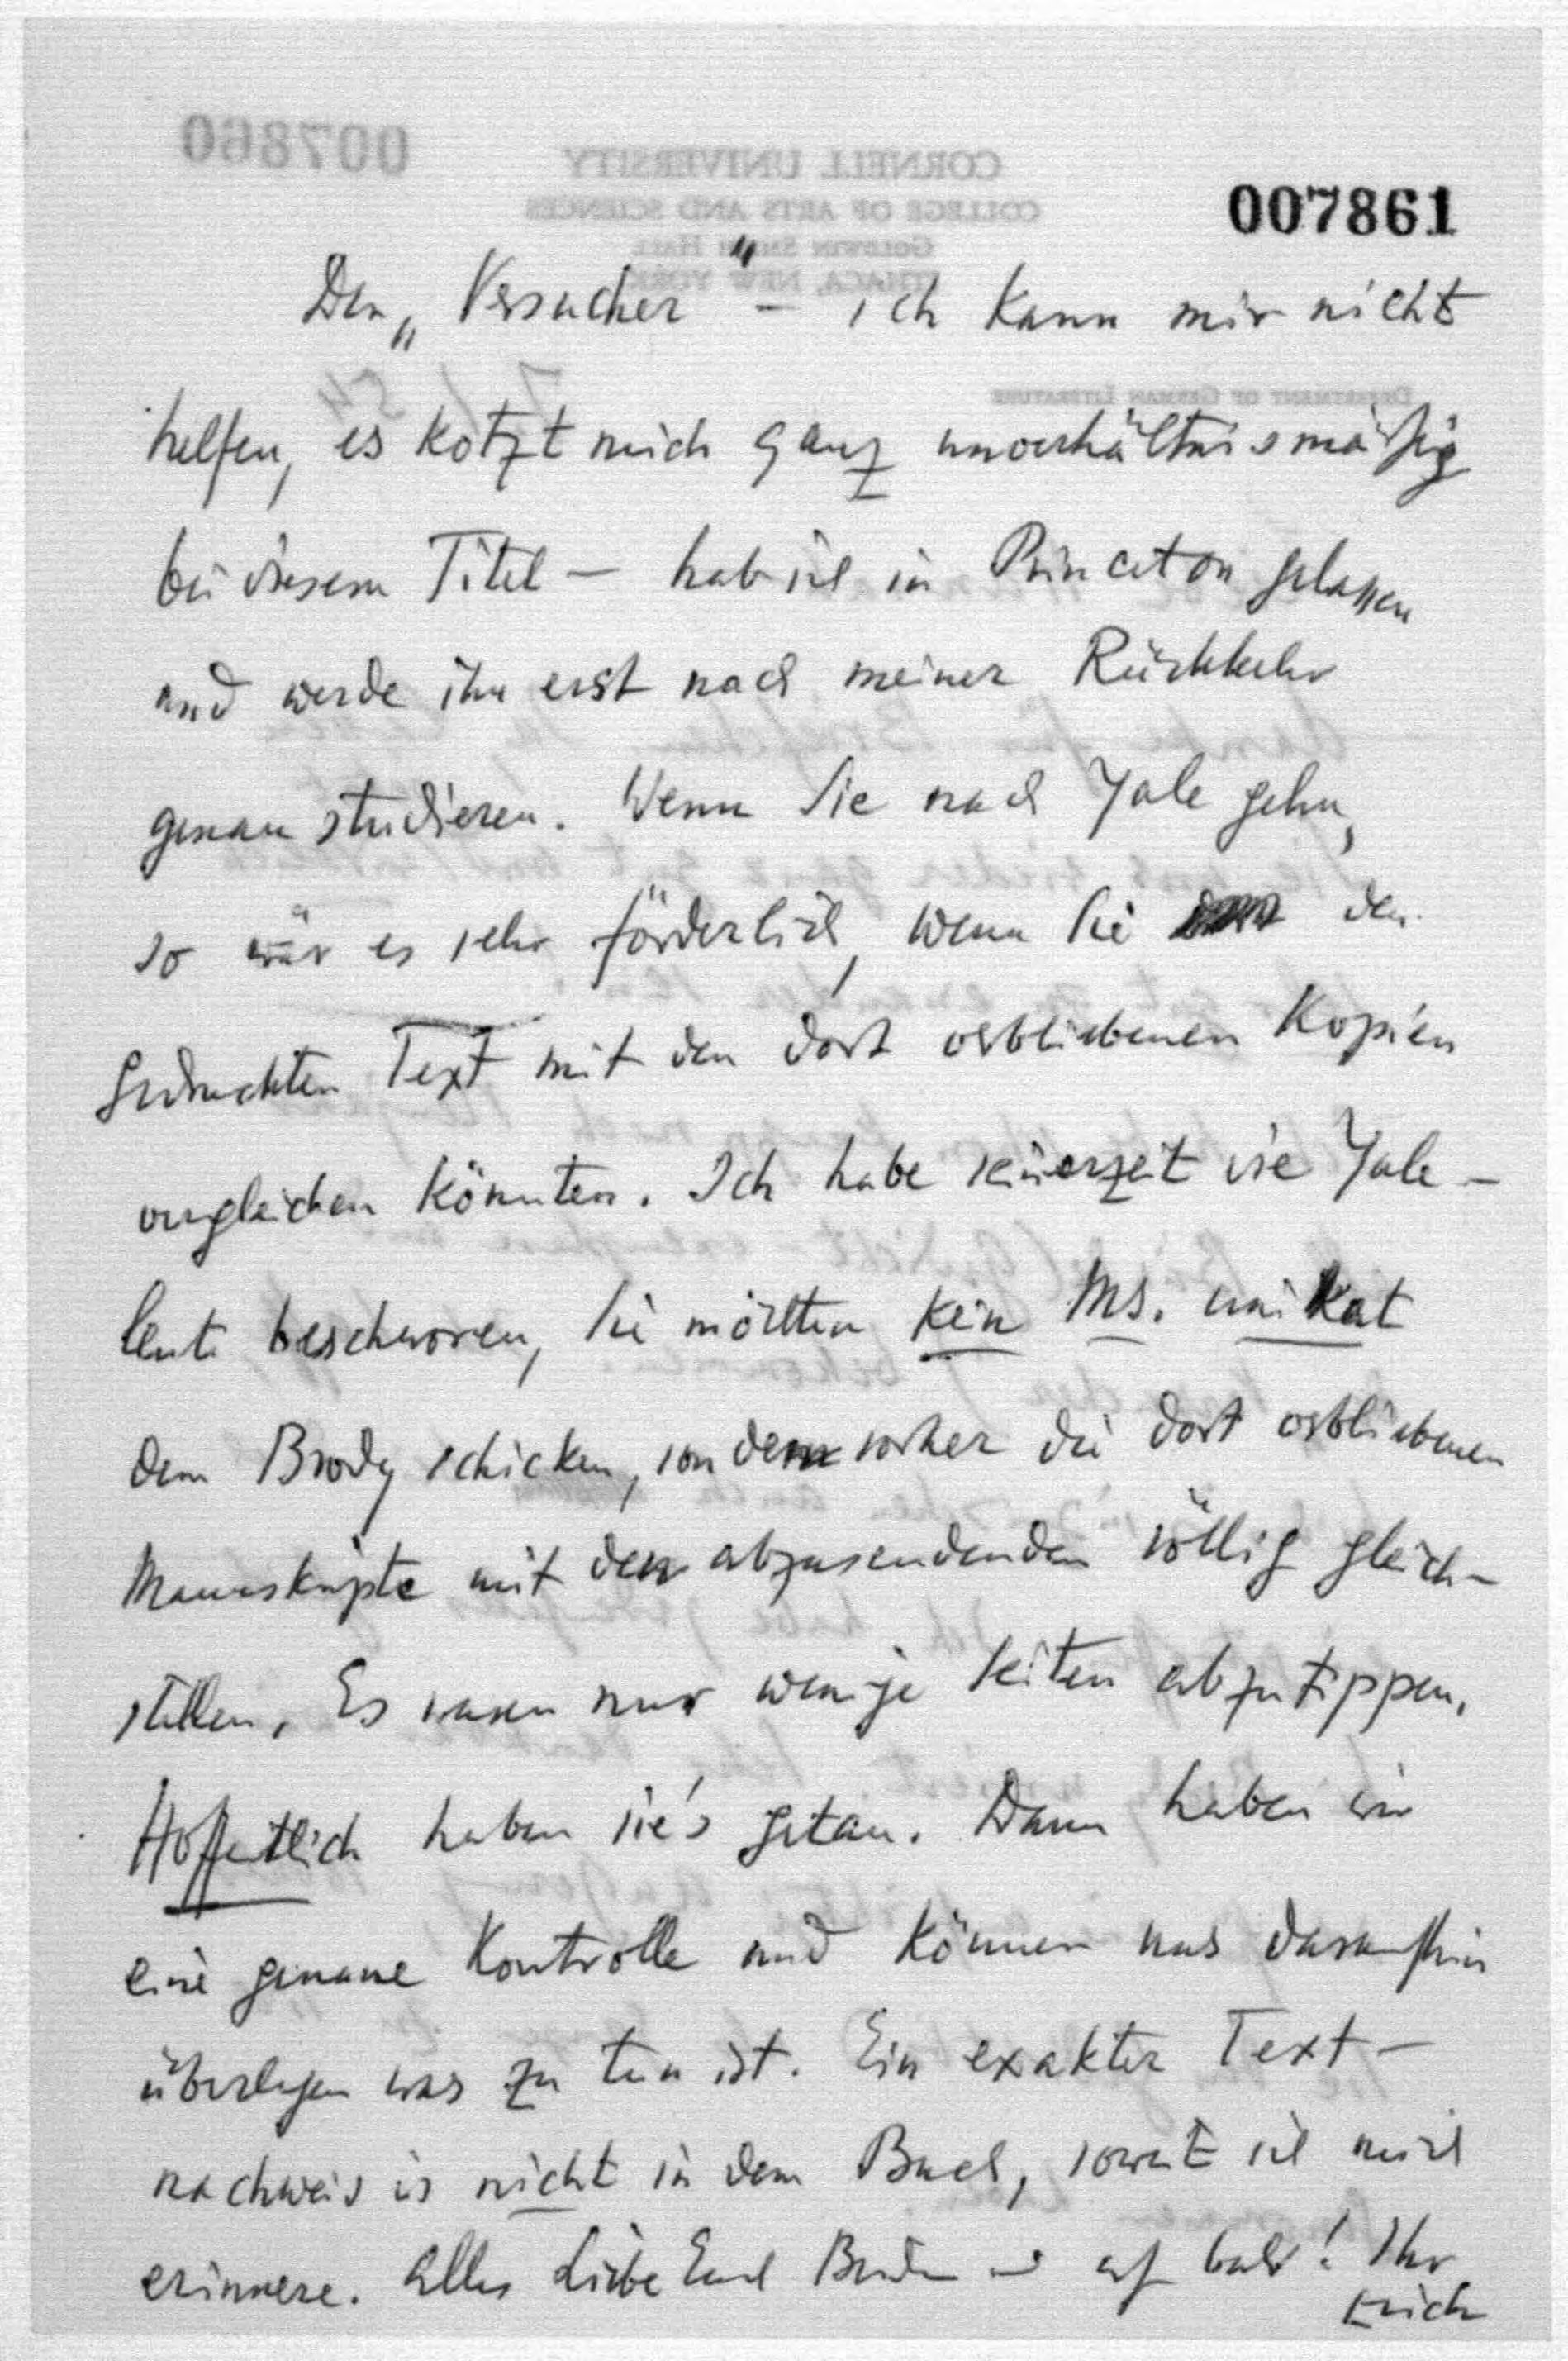 007861
Den „Versucher" – ich kann mir nicht
helfen, es kotzt mich ganz unverhältnismäßig
bei diesem Titel – hab ich in Princeton gelassen
und werde ihn erst nach meiner Rückkehr
genau studieren. Wenn Sie nach Yale gehn,
so wär es sehr förderlich, wenn Sie den
gedruckten Text mit den dort verbliebenen Kopien
vergleichen könnten. Ich habe seinerzeit die Yale-
leute beschworen, sie möchten kein Ms. unikat
dem Brody schicken, sondern vorher die dort verbliebenen
Manuskripte mit den abzusendenden völlig gleich-
stellen. Es waren nur wenige Seiten abzutippen.
Hoffentlich haben sie's getan. Dann haben wir
eine genaue Kontrolle und können uns daraufhin
überlegen was zu tun ist. Ein exakter Text-
nachweis is nicht in dem Buch, soweit ich mich
erinnere. Alles Liebe Euch Beiden und auf bald! Ihr
Erich
007860
CORNELL UNIVERSITY
COLLEGE OF ARTS AND SCIENCES
GOLDWIN SMITH HALL
ITHACA, NEW YORK
DEPARTMENT OF GERMAN LITERATURE